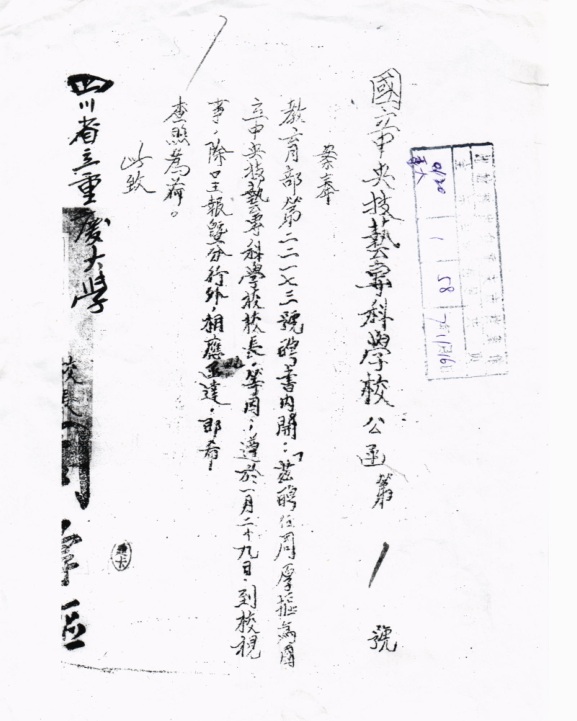 國立中央技藝專科學校公函第1號
案奉
教育部第二二一七三號聘書內開：「茲聘任周厚樞為國
立中央技藝專科學校校長」等因；遵於一月二十九日，到校視
事，除呈報暨分行外，相應函達，即希！
查照為荷。
此致
四川省立重慶大學
校長周厚樞
1
58